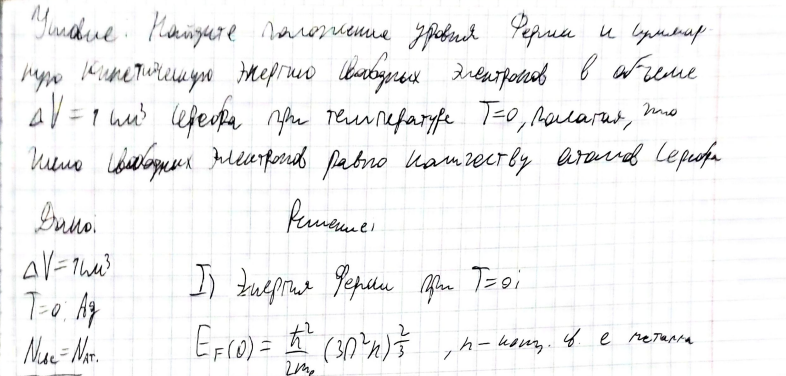 Условие. Найдите положение уровня Ферми и суммар
ную кинетическую энергию свободных электронов в объеме
ΔV = 1 см³ серебра при температуре T=0, полагая, что
число свободных электронов равно количеству атомов серебра
Дано: Решение:
ΔV = 1 см³
I) Энергия Ферми при T=0:
T=0; Ag
E_F(0) = ħ²/2m₀ (3π²n)^(2/3) , n - конц. св. e металла
N_св = N_ат.